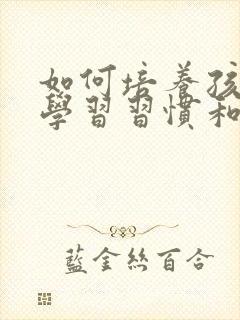 如何培養孩
學習習慣和
藍金絲百合